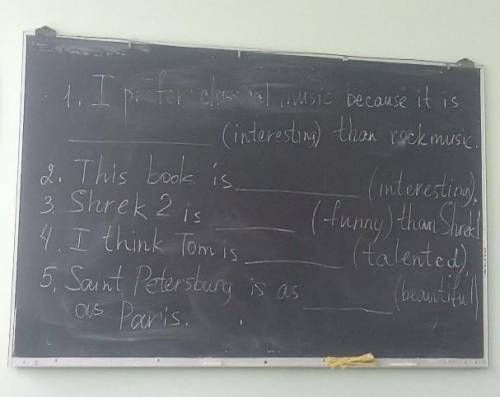 1. I prefer classical music because it is
____________ (interesting) than rock music.
2. This book is __________ (interesting).
3. Shrek 2 is ______ (funny) than Shrek 1
4. I think Tom is ______ (talented).
5. Saint Petersburg is as ______ (beautiful)
as Paris.